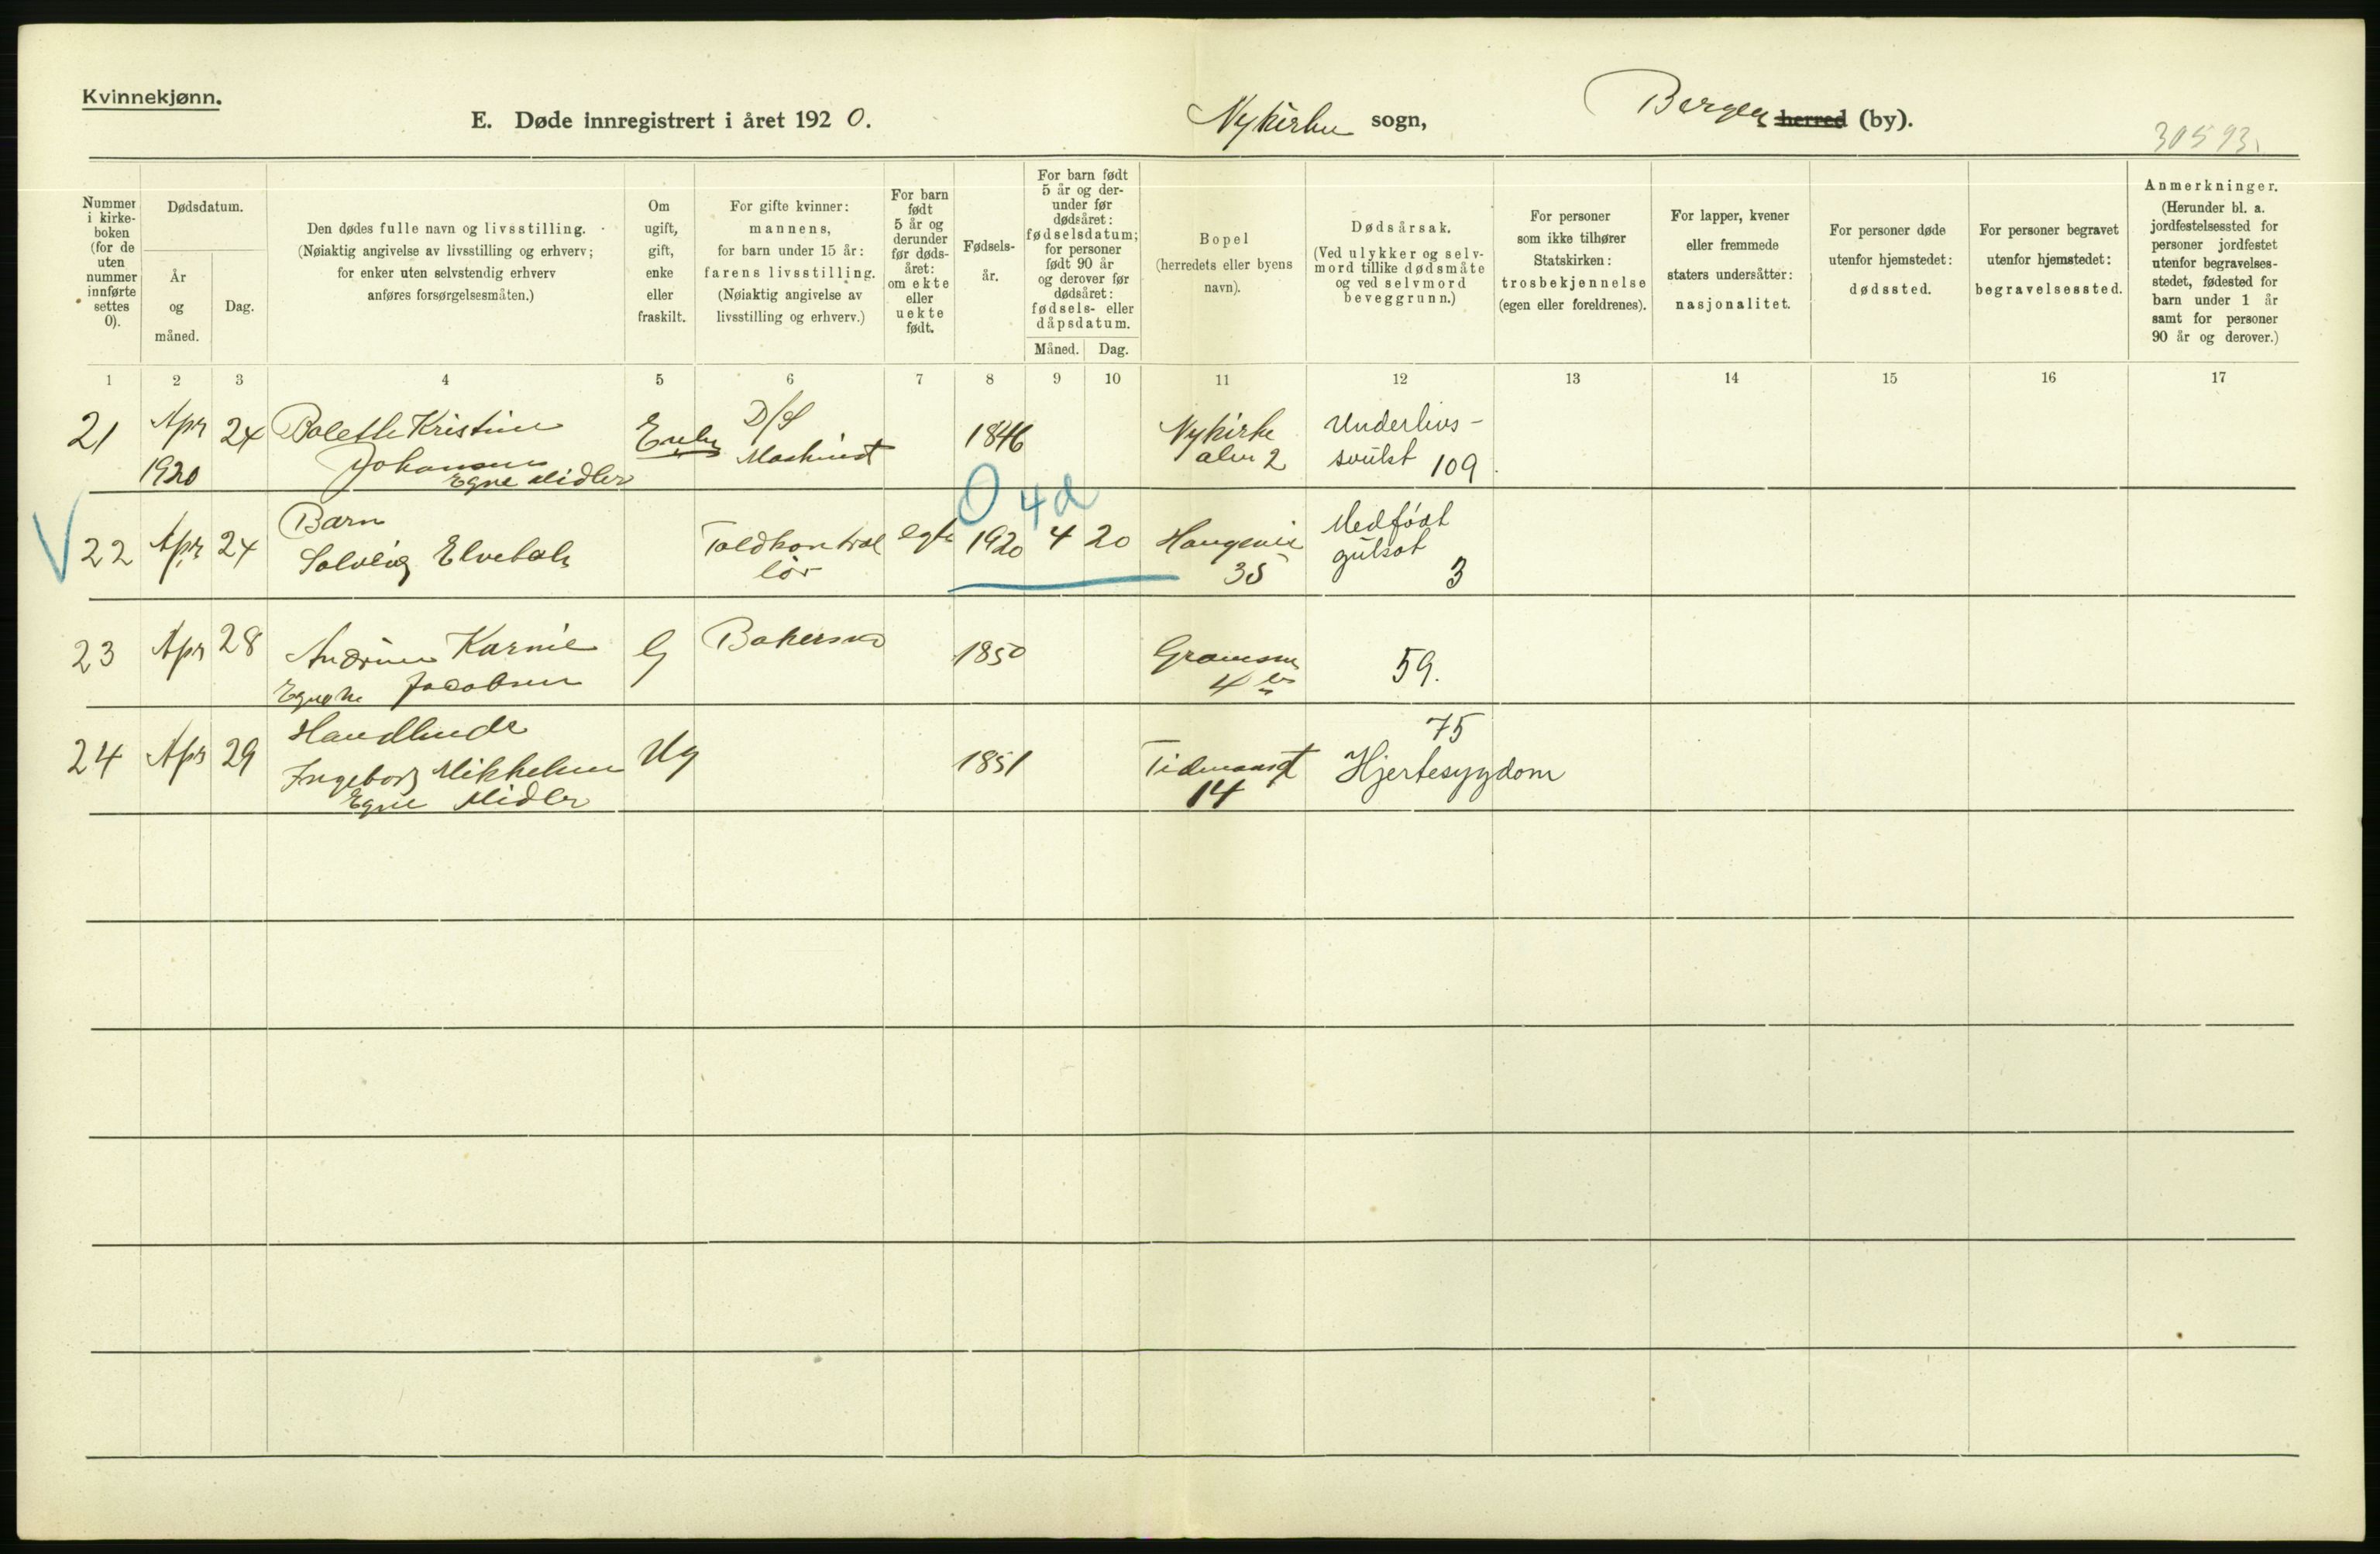 Kvinnekjønn.
E. Døde innregistrert i året 1920. Nykirke sogn, Bergen herred (by).
30593.
Nummer i kirke-boken (for de uten nummer innførte settes 0).
Dødsdatum.
År og måned.
Dag.
Den dødes fulle navn og livsstilling.
(Nøiaktig angivelse av livsstilling og erhverv;
for enker uten selvstendig erhverv
anføres forsørgelsesmåten.)
Om ugift, gift, enke eller fraskilt.
For gifte kvinner:
mannens,
for barn under 15 år:
farens livsstilling.
(Nøiaktig angivelse av
livsstilling og erhverv.)
For barn født 5 år og derunder før døds-året: om ekte eller uekte født.
Fødsels-år.
For barn født 5 år og der-under før dødsåret: fødselsdatum; for personer født 90 år og derover før dødsåret: fødsels- eller dåpsdatum.
Måned. Dag.
Bopel
(herredets eller byens
navn).
Dødsårsak.
(Ved ulykker og selv-
mord tillike dødsmåte
og ved selvmord
beveggrunn.)
For personer
som ikke tilhører
Statskirken:
trosbekjennelse
(egen eller foreldrenes).
For lapper, kvener
eller fremmede
staters undersåtter:
nasjonalitet.
For personer døde
utenfor hjemstedet:
dødssted.
For personer begravet
utenfor hjemstedet:
begravelsessted.
Anmerkninger.
(Herunder bl. a.
jordfestelsessted for
personer jordfestet
utenfor begravelses-
stedet, fødested for
barn under 1 år
samt for personer
90 år og derover.)
1 2 3 4 5 6 7 8 9 10 11 12 13 14 15 16 17
21 Apr 24 Bolette Kristine Enke D/S 1846 Nykirke Underlivs-
1920 Johansen Maskinist alm 2 svulst 109
Egne Midler
O 4d
V 22 Apr 24 Barn Toldkontrol egte 1920 4 20 Haugevei Medfødt
Solveig lør 35 gulsot
3
23 Apr 28 Andrine Karine G 1850 59.
Jacobsen 4
24 Apr 29 Ug 1851 Tidemansgt 75
Ingeborg Mikkelsen 14 Hjertesygdom
Egne Midler